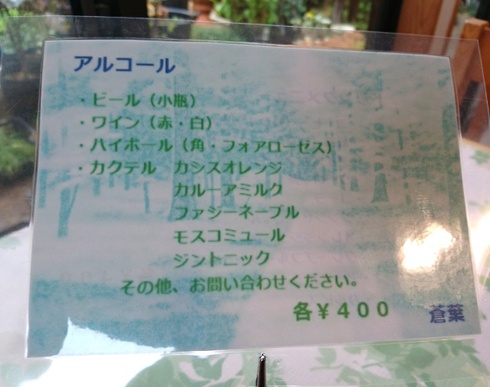 アルコール
・ビール（小瓶）
・ワイン（赤・白）
・ハイボール（角・フォアローゼス）
・カクテル　カシスオレンジ
カルーアミルク
ファジーネーブル
モスコミュール
ジントニック
その他、お問い合わせください。
各￥４００　蒼葉